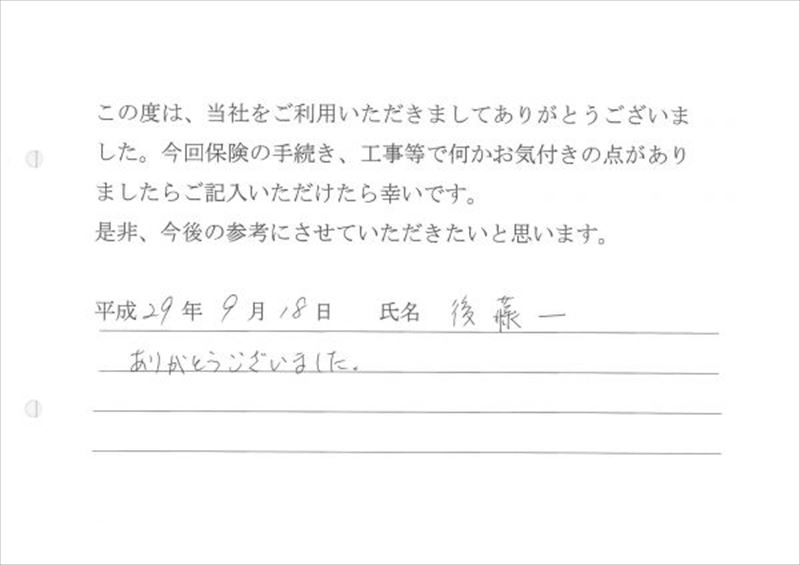 この度は、当社をご利用いただきましてありがとうございま
した。今回保険の手続き、工事等で何かお気付きの点があり
ましたらご記入いただけたら幸いです。
是非、今後の参考にさせていただきたいと思います。
平成 29 年 9 月 18 日 氏名 後藤一
ありがとうございました。